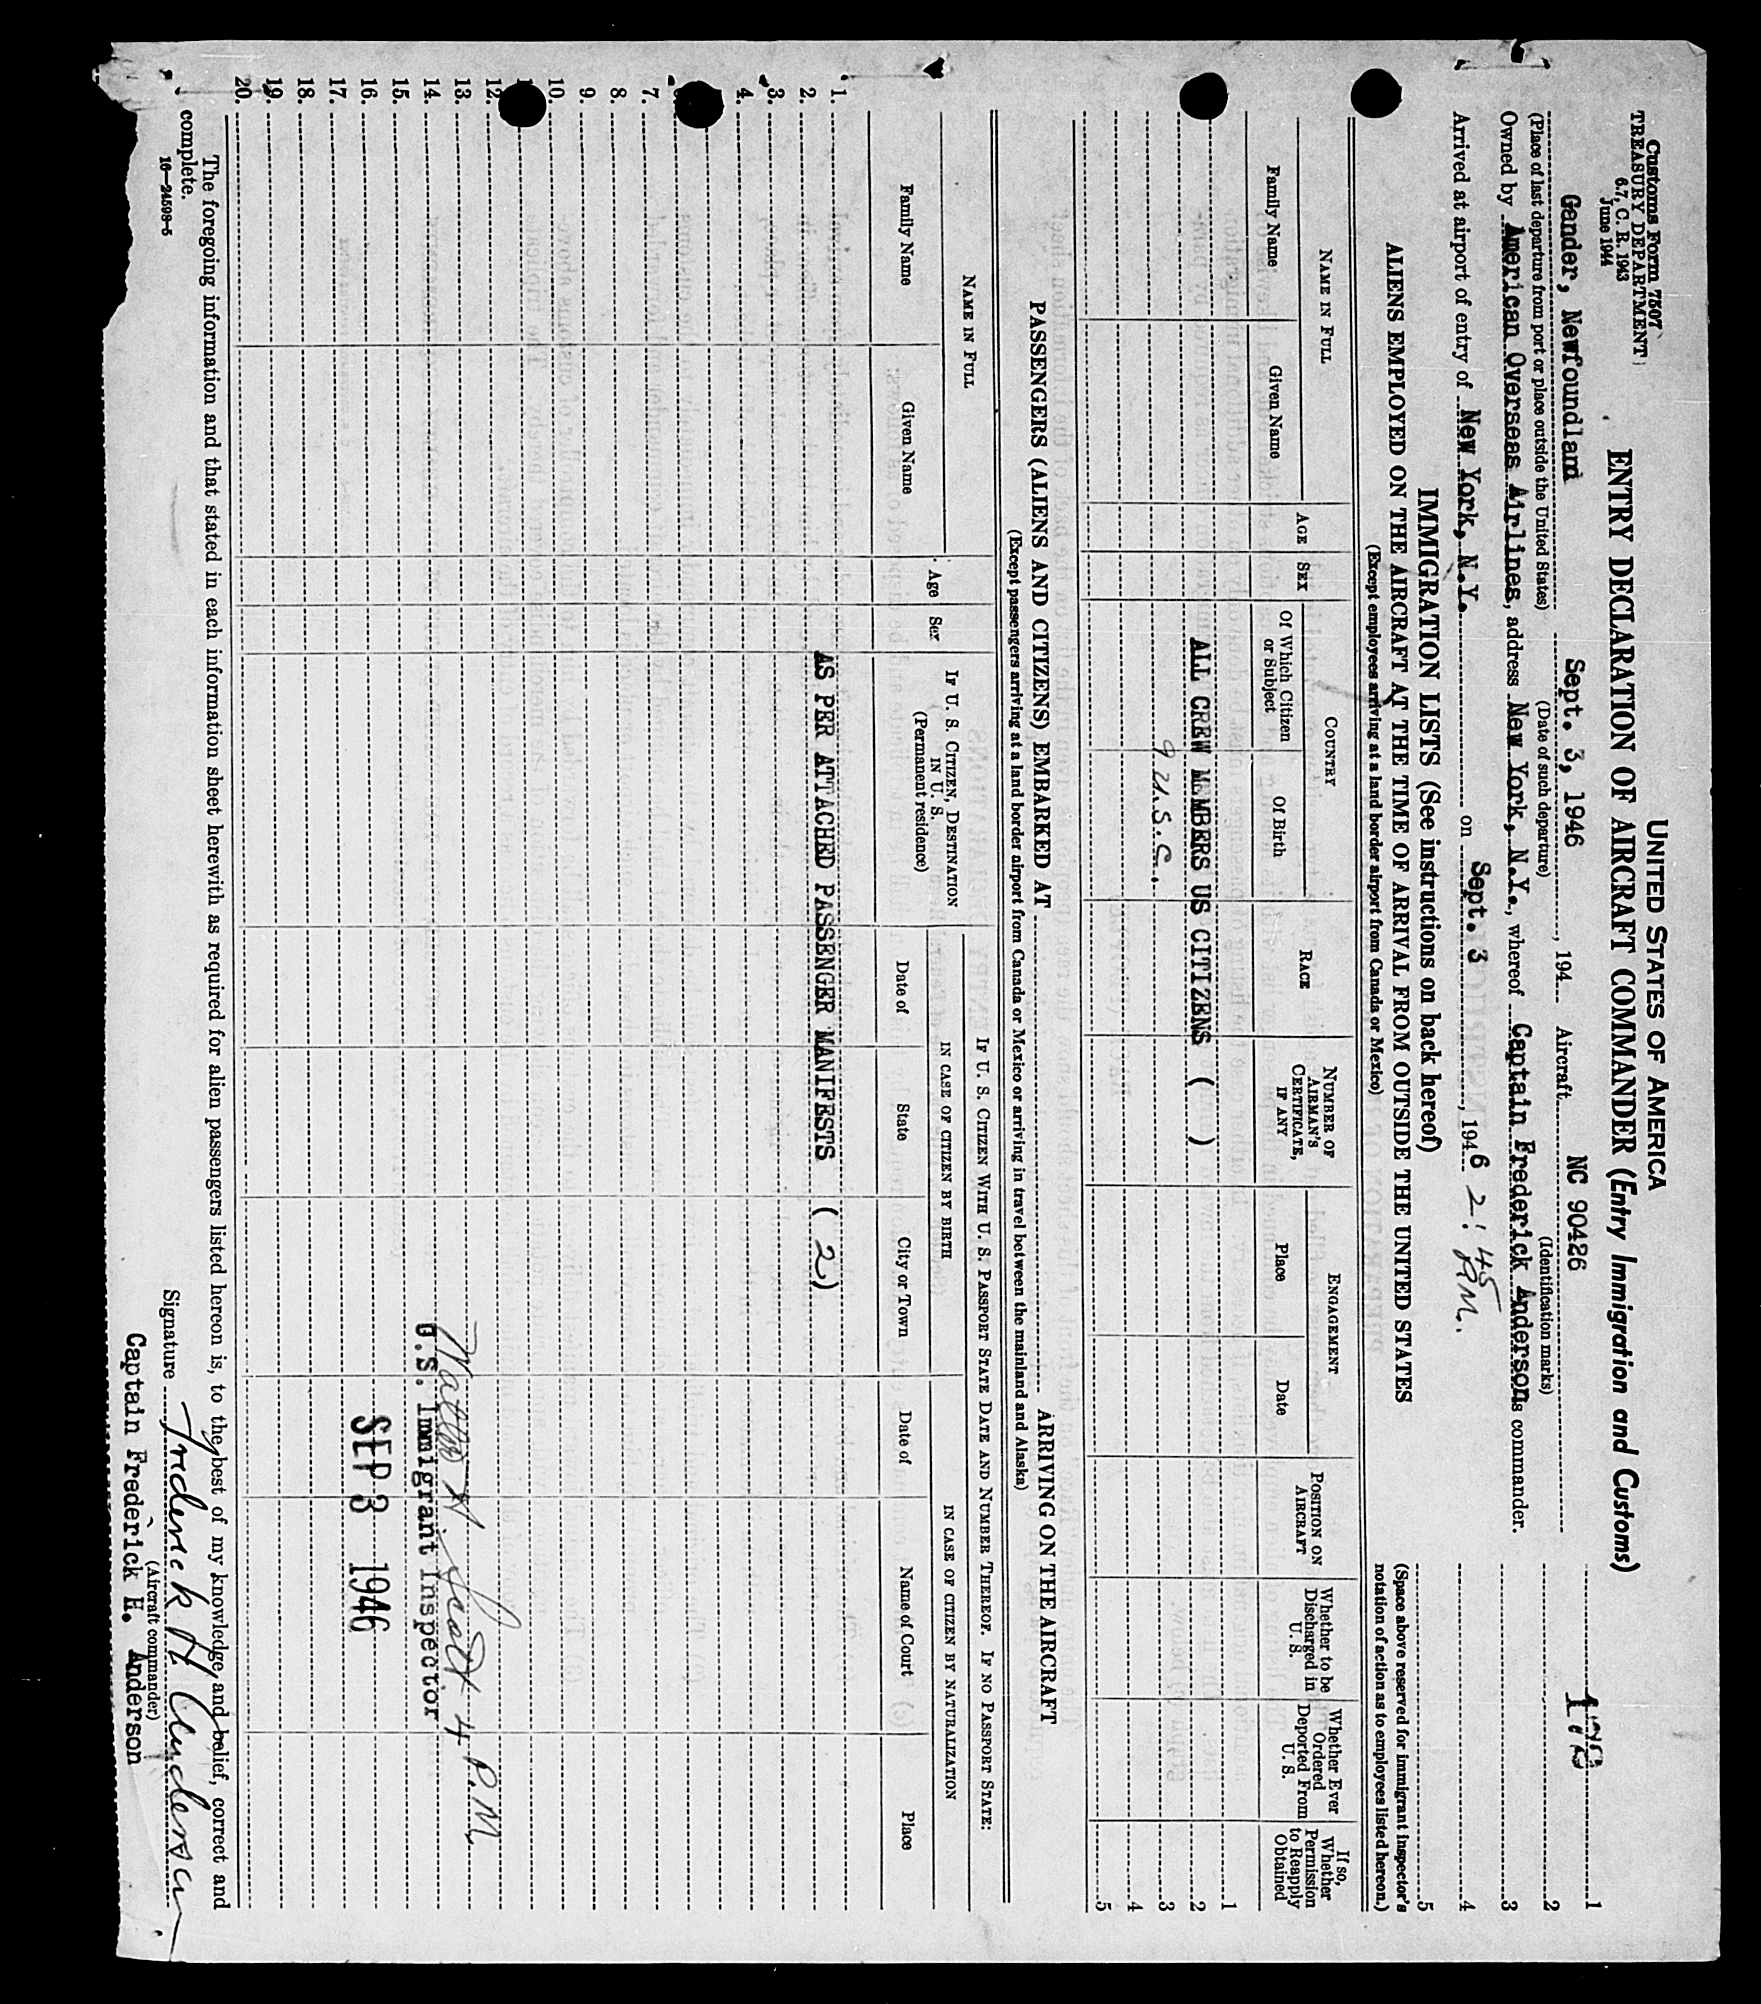 Customs Form 7507
TREASURY DEPARTMENT
6.7, C. R. 1943
June 1944
UNITED STATES OF AMERICA
ENTRY DECLARATION OF AIRCRAFT COMMANDER (Entry Immigration and Customs)
Gander, Newfoundland Sept. 3, 1946, 194 Aircraft NC 90426
(Place of last departure from port or place outside the United States) (Date of such departure) (Identification marks)
Owned by American Overseas Airlines, address New York, N.Y., whereof Captain Frederick Anderson is commander.
Arrived at airport of entry of New York, N.Y. on Sept. 3, 1946 2:45 P.M.
178 1
2
3
4
5
(Space above reserved for immigrant inspector's notation of action as to employees listed hereon.)
IMMIGRATION LISTS (See instructions on back hereof)
ALIENS EMPLOYED ON THE AIRCRAFT AT THE TIME OF ARRIVAL FROM OUTSIDE THE UNITED STATES
(Except employees arriving at a land border airport from Canada or Mexico)
NAME IN FULL
Family Name
Given Name
AGE
SEX
COUNTRY
Of Which Citizen or Subject
Of Birth
RACE
NUMBER OF AIRMAN'S CERTIFICATE, IF ANY
ENGAGEMENT
Place
Date
POSITION ON AIRCRAFT
Whether to be Discharged in U. S.
Whether Ever Ordered Deported From U. S.
If so, Whether Permission to Reapply Obtained
1
ALL CREW MEMBERS US CITIZENS ( ) 2
9 U.S.C. 3
4
5
PASSENGERS (ALIENS AND CITIZENS) EMBARKED AT ARRIVING ON THE AIRCRAFT
(Except passengers arriving at a land border airport from Canada or Mexico or arriving in travel between the mainland and Alaska)
NAME IN FULL
Family Name
Given Name
Age
Sex
IF U. S. CITIZEN, DESTINATION IN U. S.
(Permanent residence)
IF U. S. CITIZEN WITH U. S. PASSPORT STATE DATE AND NUMBER THEREOF. IF NO PASSPORT STATE:
IN CASE OF CITIZEN BY BIRTH
IN CASE OF CITIZEN BY NATURALIZATION
Date of
State
City or Town
Date of
Name of Court
Place
1.
AS PER ATTACHED PASSENGER MANIFESTS ( 2 )
2.
3.
4.
7.
8.
9.
10.
12.
13.
14.
15.
16.
17.
18.
19.
20.
Scott 4 P.M.
U.S. Immigrant Inspector
SEP 3 1946
The foregoing information and that stated in each information sheet herewith as required for alien passengers listed hereon is, to the best of my knowledge and belief, correct and
complete.
16—24598-5
Signature Frederick H. Anderson
(Aircraft commander)
Captain Frederick H. Anderson